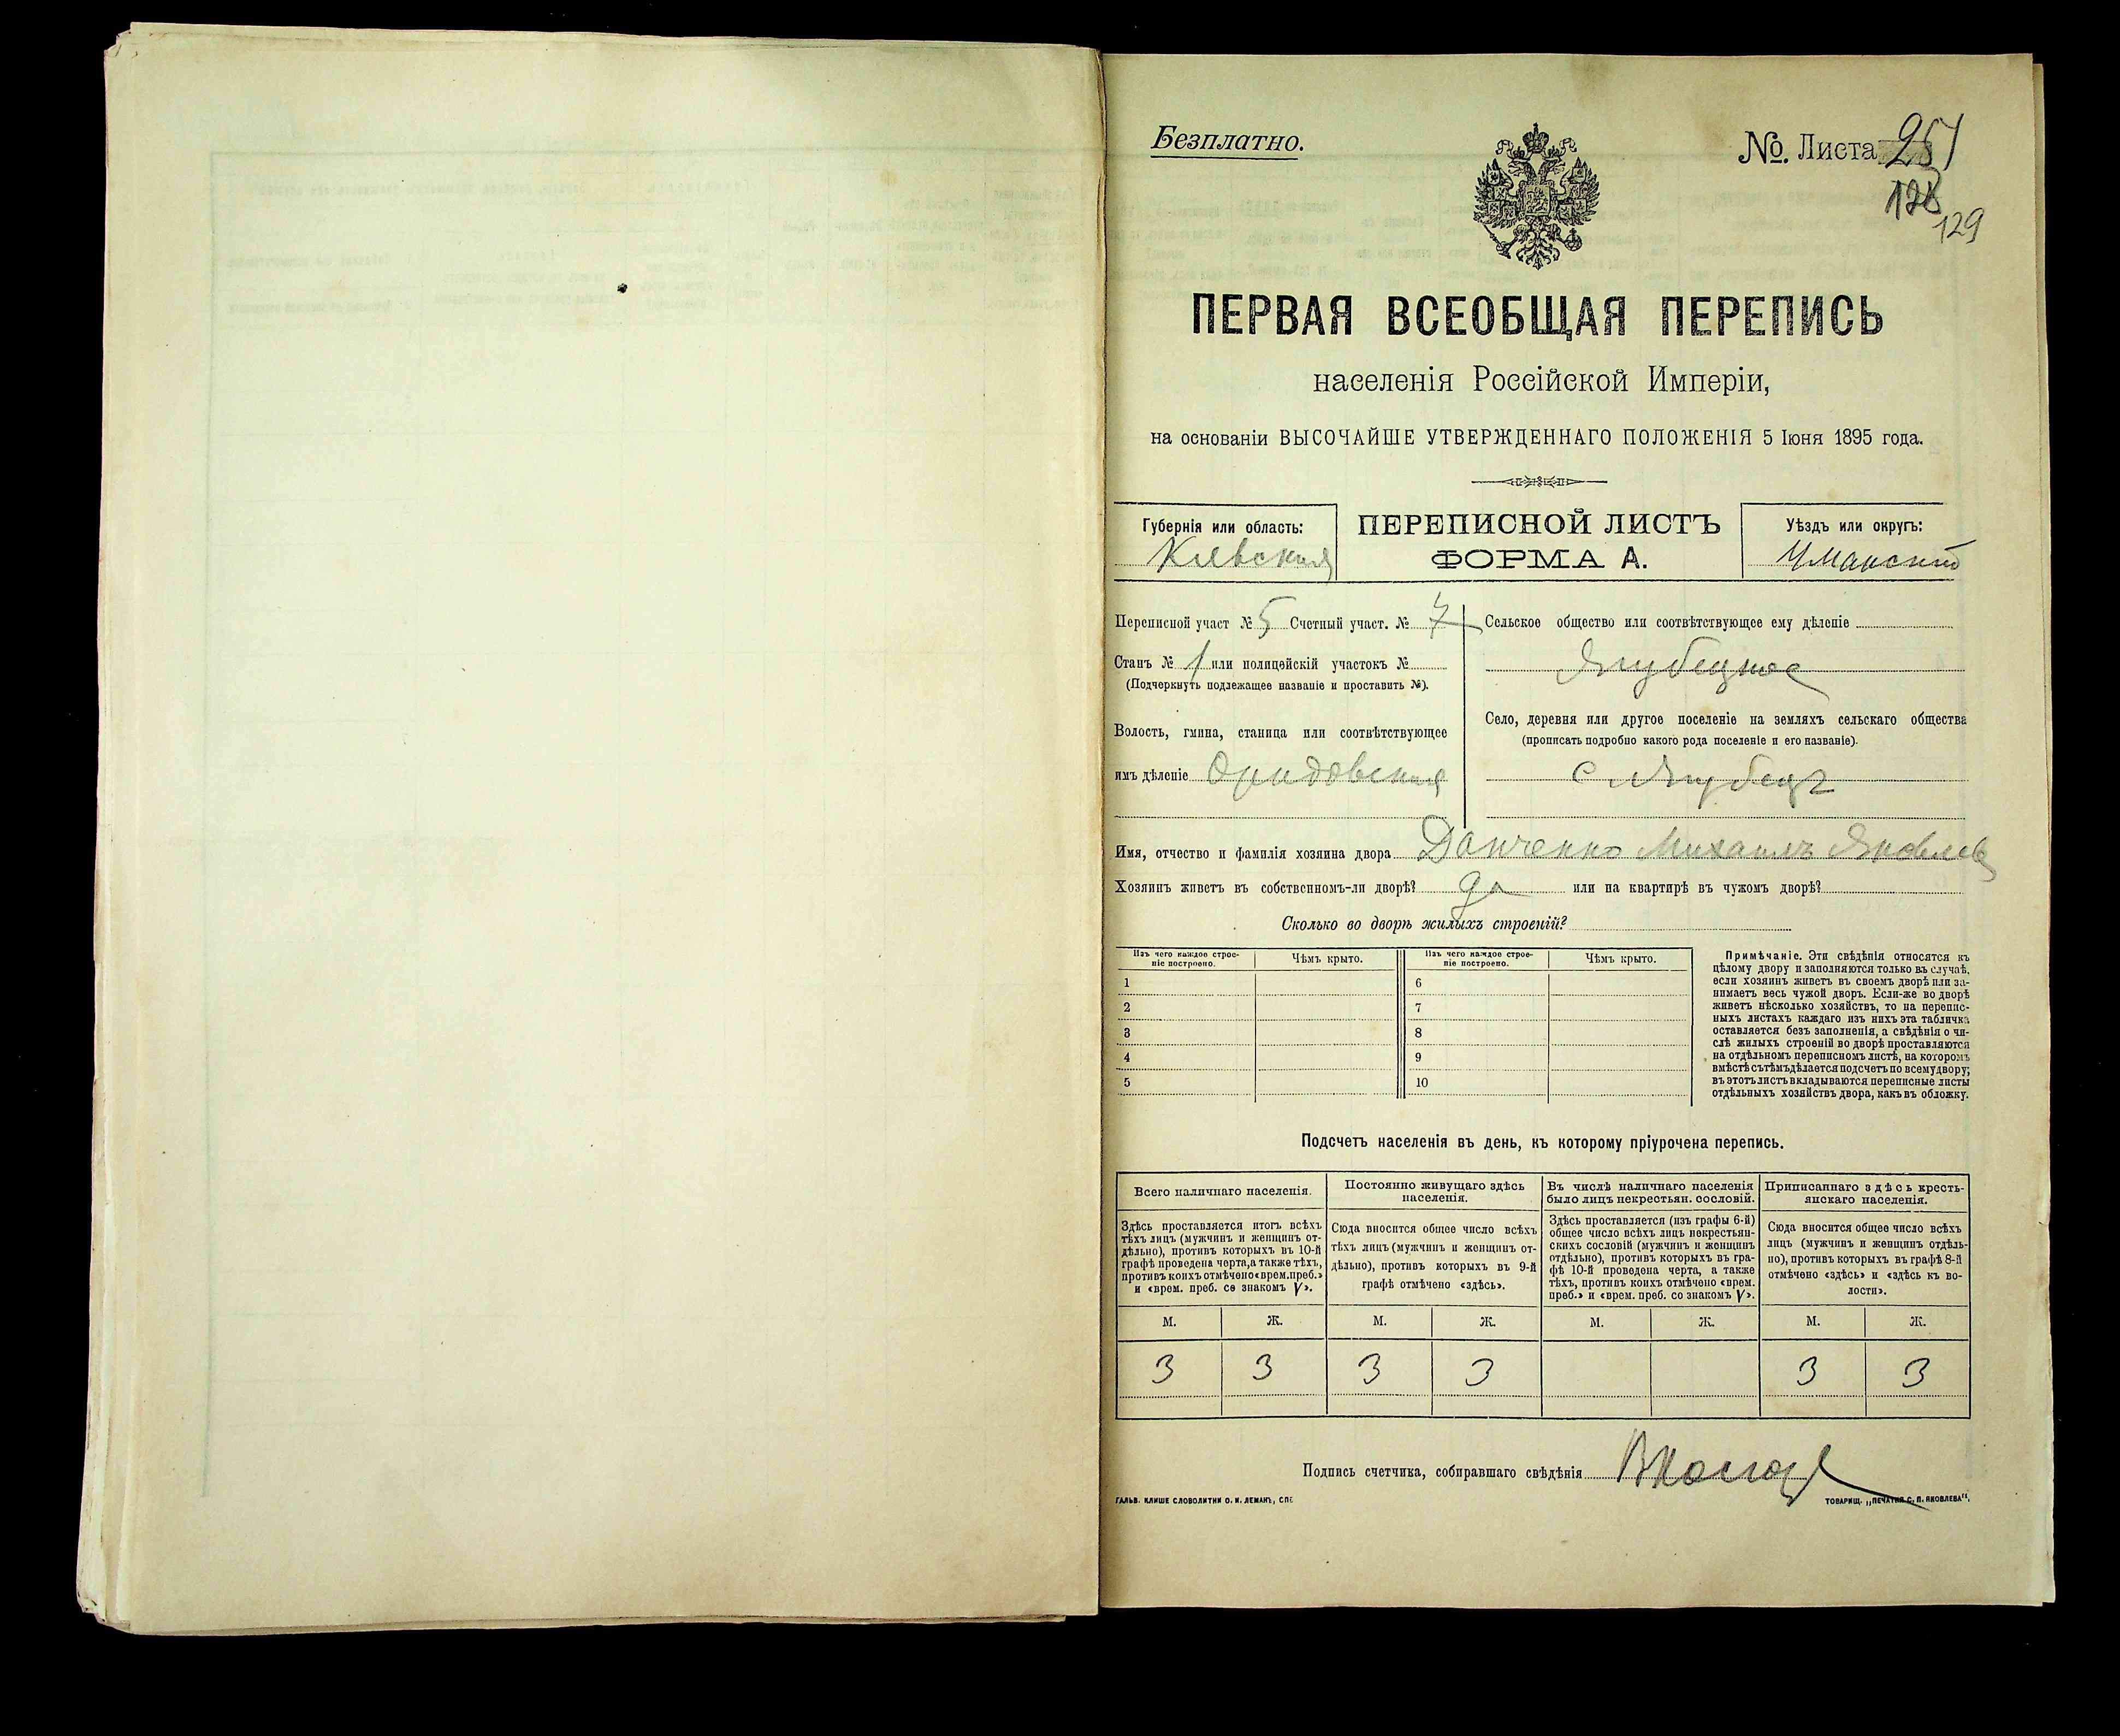 Безплатно.
№. Листа 251
128
129
ПЕРВАЯ ВСЕОБЩАЯ ПЕРЕПИСЬ
населенія Россійской Имперіи,
на основаніи ВЫСОЧАЙШЕ УТВЕРЖДЕННАГО ПОЛОЖЕНІЯ 5 Іюня 1895 года.
Губернія или область:
Кіевская
ПЕРЕПИСНОЙ ЛИСТЪ
ФОРМА А.
Уѣздъ или округъ:
Уманскій
Переписной участ № 5 Счетный участ. № 7
Станъ № 1 или полицейскій участокъ №
(Подчеркнуть подлежащее названіе и проставить №).
Волость, гмина, станица или соотвѣтствующее
имъ дѣленіе
Сельское общество или соотвѣтствующее ему дѣленіе
Ягубецкое
Село, деревня или другое поселеніе на земляхъ сельскаго общества
(прописать подробно какого рода поселеніе и его названіе).
с Ягубецъ
Имя, отчество и фамилія хозяина двора Данченко Михаилъ Яковлев
Хозяинъ живетъ въ собственномъ-ли дворѣ? да или на квартирѣ въ чужомъ дворѣ?
Сколько во дворѣ жилыхъ строеній?
Изъ чего каждое строе-
ніе построено.
Чѣмъ крыто.
Изъ чего каждое строе-
ніе построено.
Чѣмъ крыто.
1 6
2 7
3 8
4 9
5 10
Примѣчаніе. Эти свѣдѣнія относятся къ
цѣлому двору и заполняются только въ случаѣ,
если хозяинъ живетъ въ своемъ дворѣ или за-
нимаетъ весь чужой дворъ. Если-же во дворѣ
живетъ нѣсколько хозяйствъ, то на перепис-
ныхъ листахъ каждаго изъ нихъ эта табличка
оставляется безъ заполненія, а свѣдѣнія о чи-
слѣ жилыхъ строеній во дворѣ проставляются
на отдѣльномъ переписномъ листѣ, на которомъ
вмѣстѣ съ тѣмъ дѣлается подсчетъ по всему двору;
въ этотъ листъ вкладываются переписные листы
отдѣльныхъ хозяйствъ двора, какъ въ обложку.
Подсчетъ населенія въ день, къ которому пріурочена перепись.
Всего наличнаго населенія.
Здѣсь проставляется итогъ всѣхъ
тѣхъ лицъ (мужчинъ и женщинъ от-
дѣльно), противъ которыхъ въ 10-й
графѣ проведена черта, а также тѣхъ,
противъ коихъ отмѣчено «врем. преб.»
и «врем. преб. со знакомъ V».
Постоянно живущаго здѣсь
населенія.
Сюда вносится общее число всѣхъ
тѣхъ лицъ (мужчинъ и женщинъ от-
дѣльно), противъ которыхъ въ 9-й
графѣ отмѣчено «здѣсь».
Въ числѣ наличнаго населенія
было лицъ некрестьян. сословій.
Здѣсь проставляется (изъ графы 6-й)
общее число всѣхъ лицъ некрестьян-
скихъ сословій (мужчинъ и женщинъ
отдѣльно), противъ которыхъ въ гра-
фѣ 10-й проведена черта, а также
тѣхъ, противъ коихъ отмѣчено «врем.
преб.» и «врем. преб. со знакомъ V».
Приписаннаго здѣсь кресть-
янскаго населенія.
Сюда вносится общее число всѣхъ
лицъ (мужчинъ и женщинъ отдѣль-
но), противъ которыхъ въ графѣ 8-й
отмѣчено «здѣсь» и «здѣсь къ во-
лости».
М. Ж. М. Ж. М. Ж. М. Ж.
3 3 3 3 3 3
Подпись счетчика, собиравшаго свѣдѣнія
ГАЛЬВ. КЛИШЕ СЛОВОЛИТНИ О. И. ЛЕМАНЪ, СПБ
ТОВАРИЩ. „ПЕЧАТНЯ С. П. ЯКОВЛЕВА“.